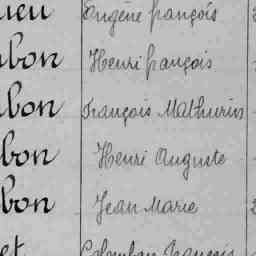 Eugène françois
bon Henri françois
bon François Mathurin
bon Henri Auguste
bon Jean Marie
Colomban François